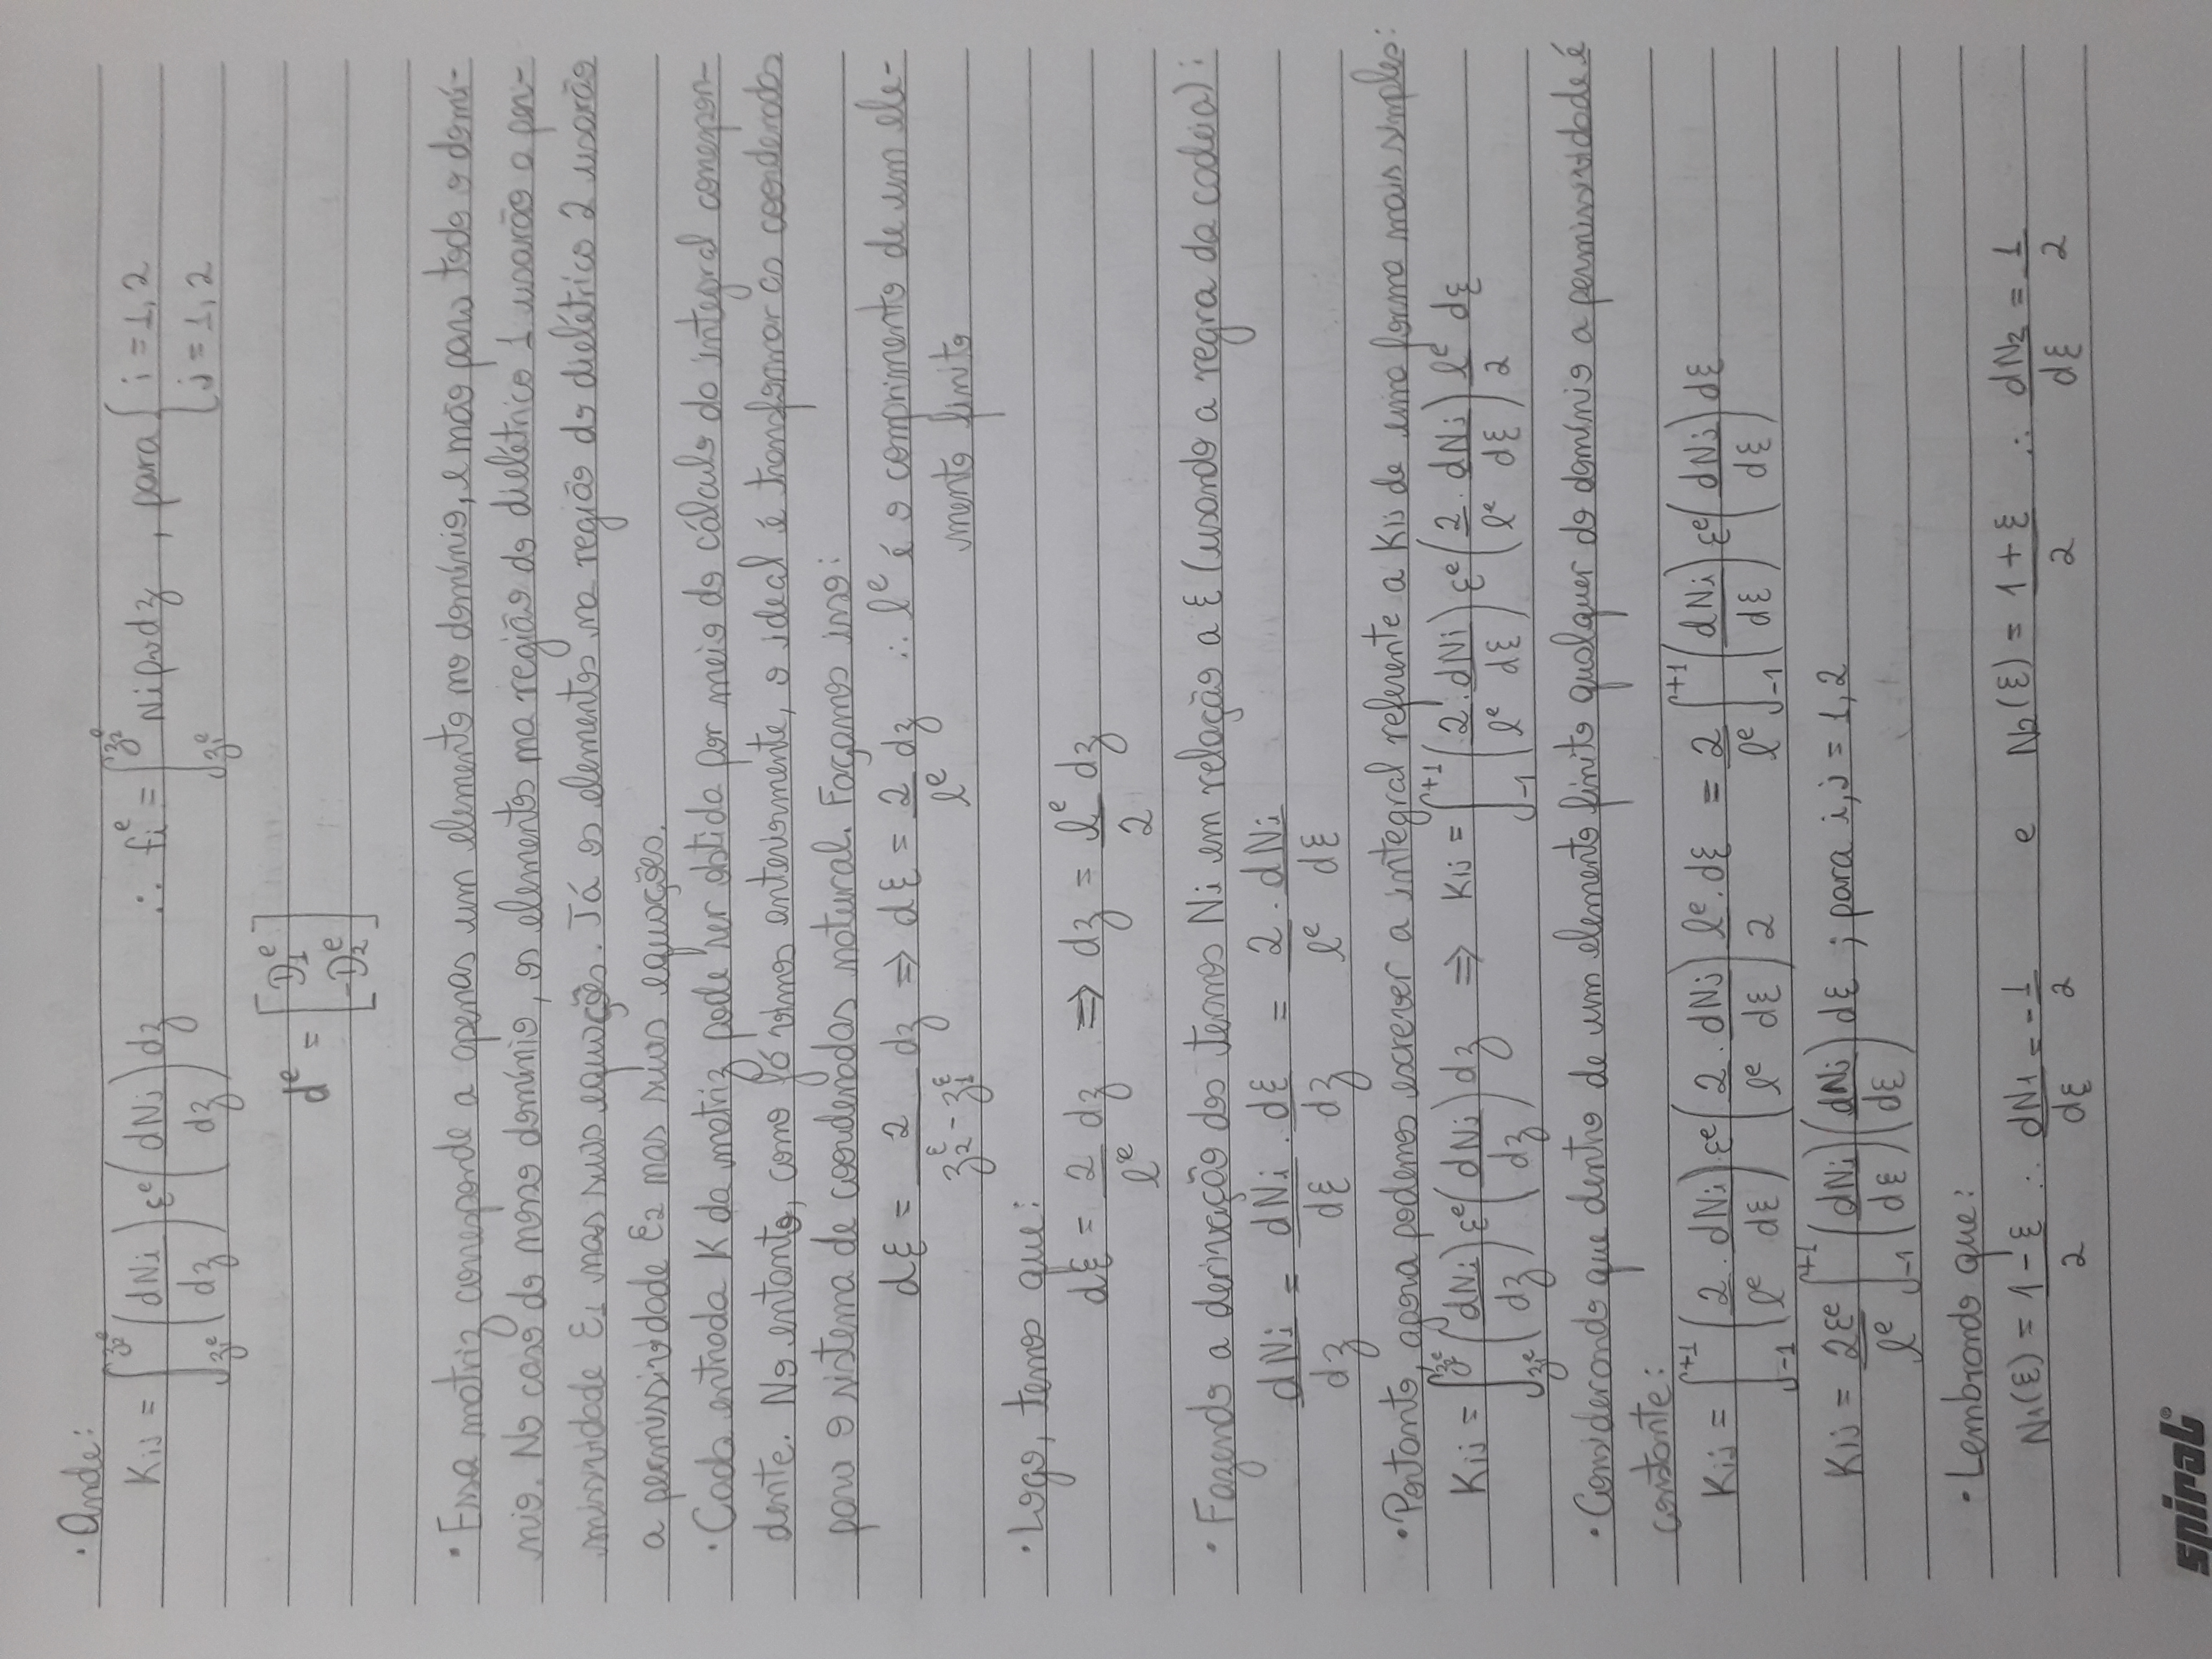 · Onde:
Kij = ∫_{z₁ᵉ}^{z₂ᵉ} (dNi/dz) εᵉ (dNj/dz) dz ∴ fiᵉ = ∫_{z₁ᵉ}^{z₂ᵉ} Ni ρv dz , para { i = 1, 2
j = 1, 2
dᵉ = [ D₁ᵉ
-D₂ᵉ ]
· Essa matriz corresponde a apenas um elemento no domínio, e não para todo o domí-
nio. No caso do nosso domínio, os elementos na região do dielétrico 1 usarão a per-
missividade ε₁ nas suas equações. Já os elementos na região do dielétrico 2 usarão
a permissividade ε₂ nas suas equações.
· Cada entrada K da matriz pode ser obtida por meio do cálculo da integral correspon-
dente. No entanto, como já vimos anteriormente, o ideal é transformar as coordenadas
para o sistema de coordenadas natural. Façamos isso:
dξ = 2/(z₂^ξ - z₁^ξ) dz ⇒ dξ = 2/lᵉ dz ∴ lᵉ é o comprimento de um ele-
mento finito
· Logo, temos que:
dξ = 2/lᵉ dz ⇒ dz = lᵉ/2 dz
· Fazendo a derivação dos termos Ni em relação a ξ (usando a regra da cadeia):
dNi/dz = dNi/dξ · dξ/dz = 2/lᵉ · dNi/dξ
· Portanto, agora podemos escrever a integral referente a Kij de uma forma mais simples:
Kij = ∫_{z₁ᵉ}^{z₂ᵉ} (dNi/dz) εᵉ (dNj/dz) dz ⇒ Kij = ∫_{-1}^{+1} (2/lᵉ · dNi/dξ) εᵉ (2/lᵉ · dNj/dξ) lᵉ/2 dξ
· Considerando que dentro de um elemento finito qualquer do domínio a permissividade é
constante:
Kij = ∫_{-1}^{+1} (2/lᵉ · dNi/dξ) · εᵉ (2/lᵉ · dNj/dξ) lᵉ/2 · dξ = 2/lᵉ ∫_{-1}^{+1} (dNi/dξ) εᵉ (dNj/dξ) dξ
Kij = 2εᵉ/lᵉ ∫_{-1}^{+1} (dNi/dξ) (dNj/dξ) dξ ; para i, j = 1, 2
· Lembrando que:
N₁(ξ) = (1 - ξ)/2 ∴ dN₁/dξ = -1/2 e N₂(ξ) = (1 + ξ)/2 ∴ dN₂/dξ = 1/2
spiral®